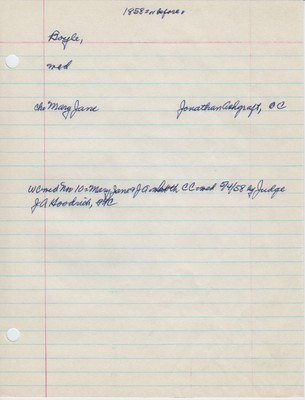 1858 or before
Boyle,
med
ch: Mary Jane Jonathan Ashcraft, OC
WC med Nov 10 Mary Jane & J A both CC med 5/4/58 by Judge
J. A. Goodrich,